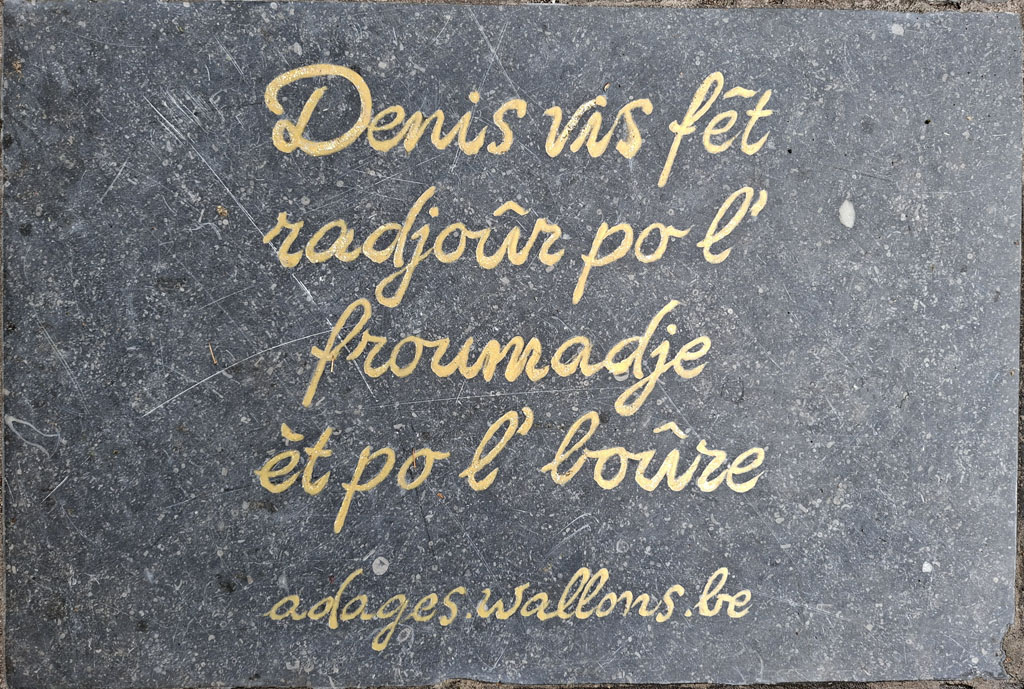 Denis vis fêt
radjoûr po l'
froumadje
èt po l' boûre
adages.wallons.be